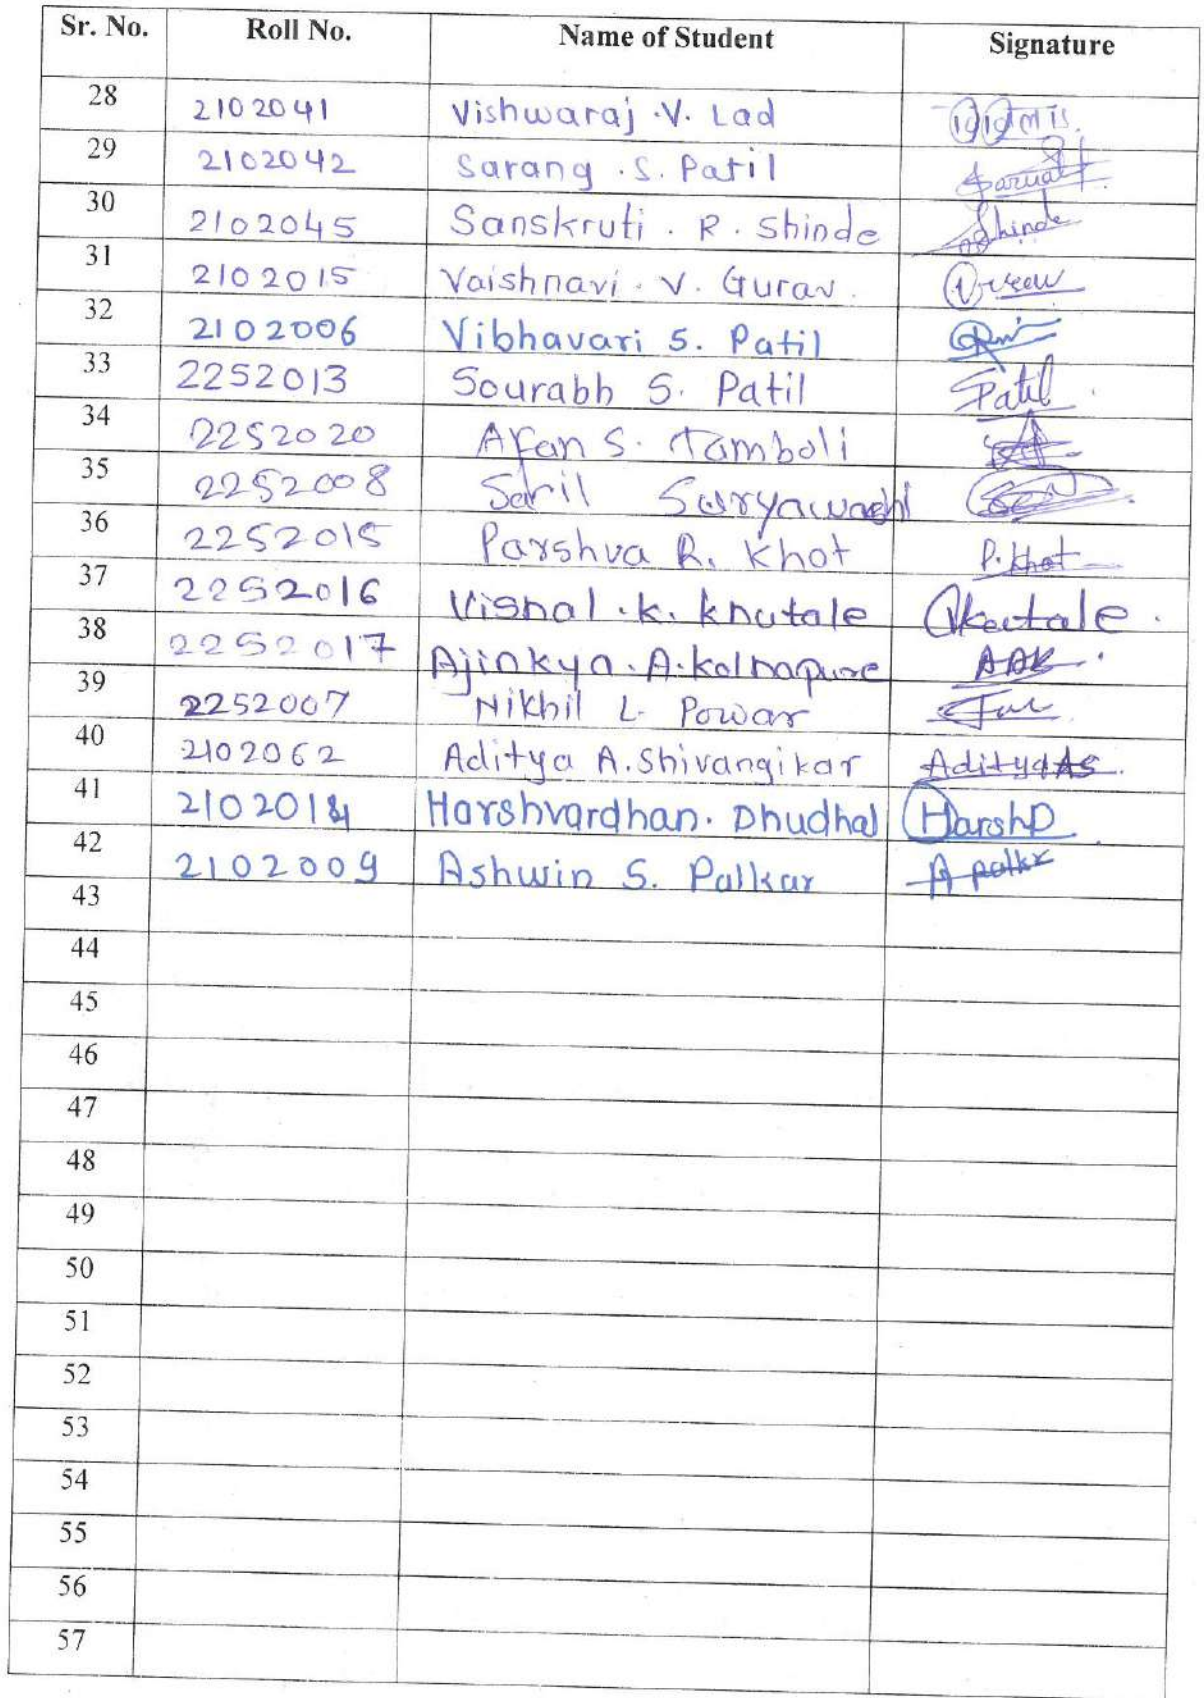 Sr. No. Roll No. Name of Student Signature
28 2102041 Vishwaraj .V. Lad
29 2102042 Sarang .S. Patil
30 2102045 Sanskruti . R . Shinde Shinde
31 2102015 Vaishnavi . V. Gurav
32 2102006 Vibhavari S. Patil
33 2252013 Sourabh S. Patil SPatil
34 2252020 Afan S. Tamboli
35 2252008 Suryawashi
36 2252015 Parshva R. Khot P. Khot
37 2252016 Vishal .k. khutale
38 2252017 Ajinkya. A. kolhapure AAK
39 2252007 Nikhil L. Powar
40 2102062 Aditya A. Shivangikar AdityaAS
41 Harshvardhan. Dhudhal HarshD
42 2102009 Ashwin S. Palkar A palkr
43
44
45
46
47
48
49
50
51
52
53
54
55
56
57